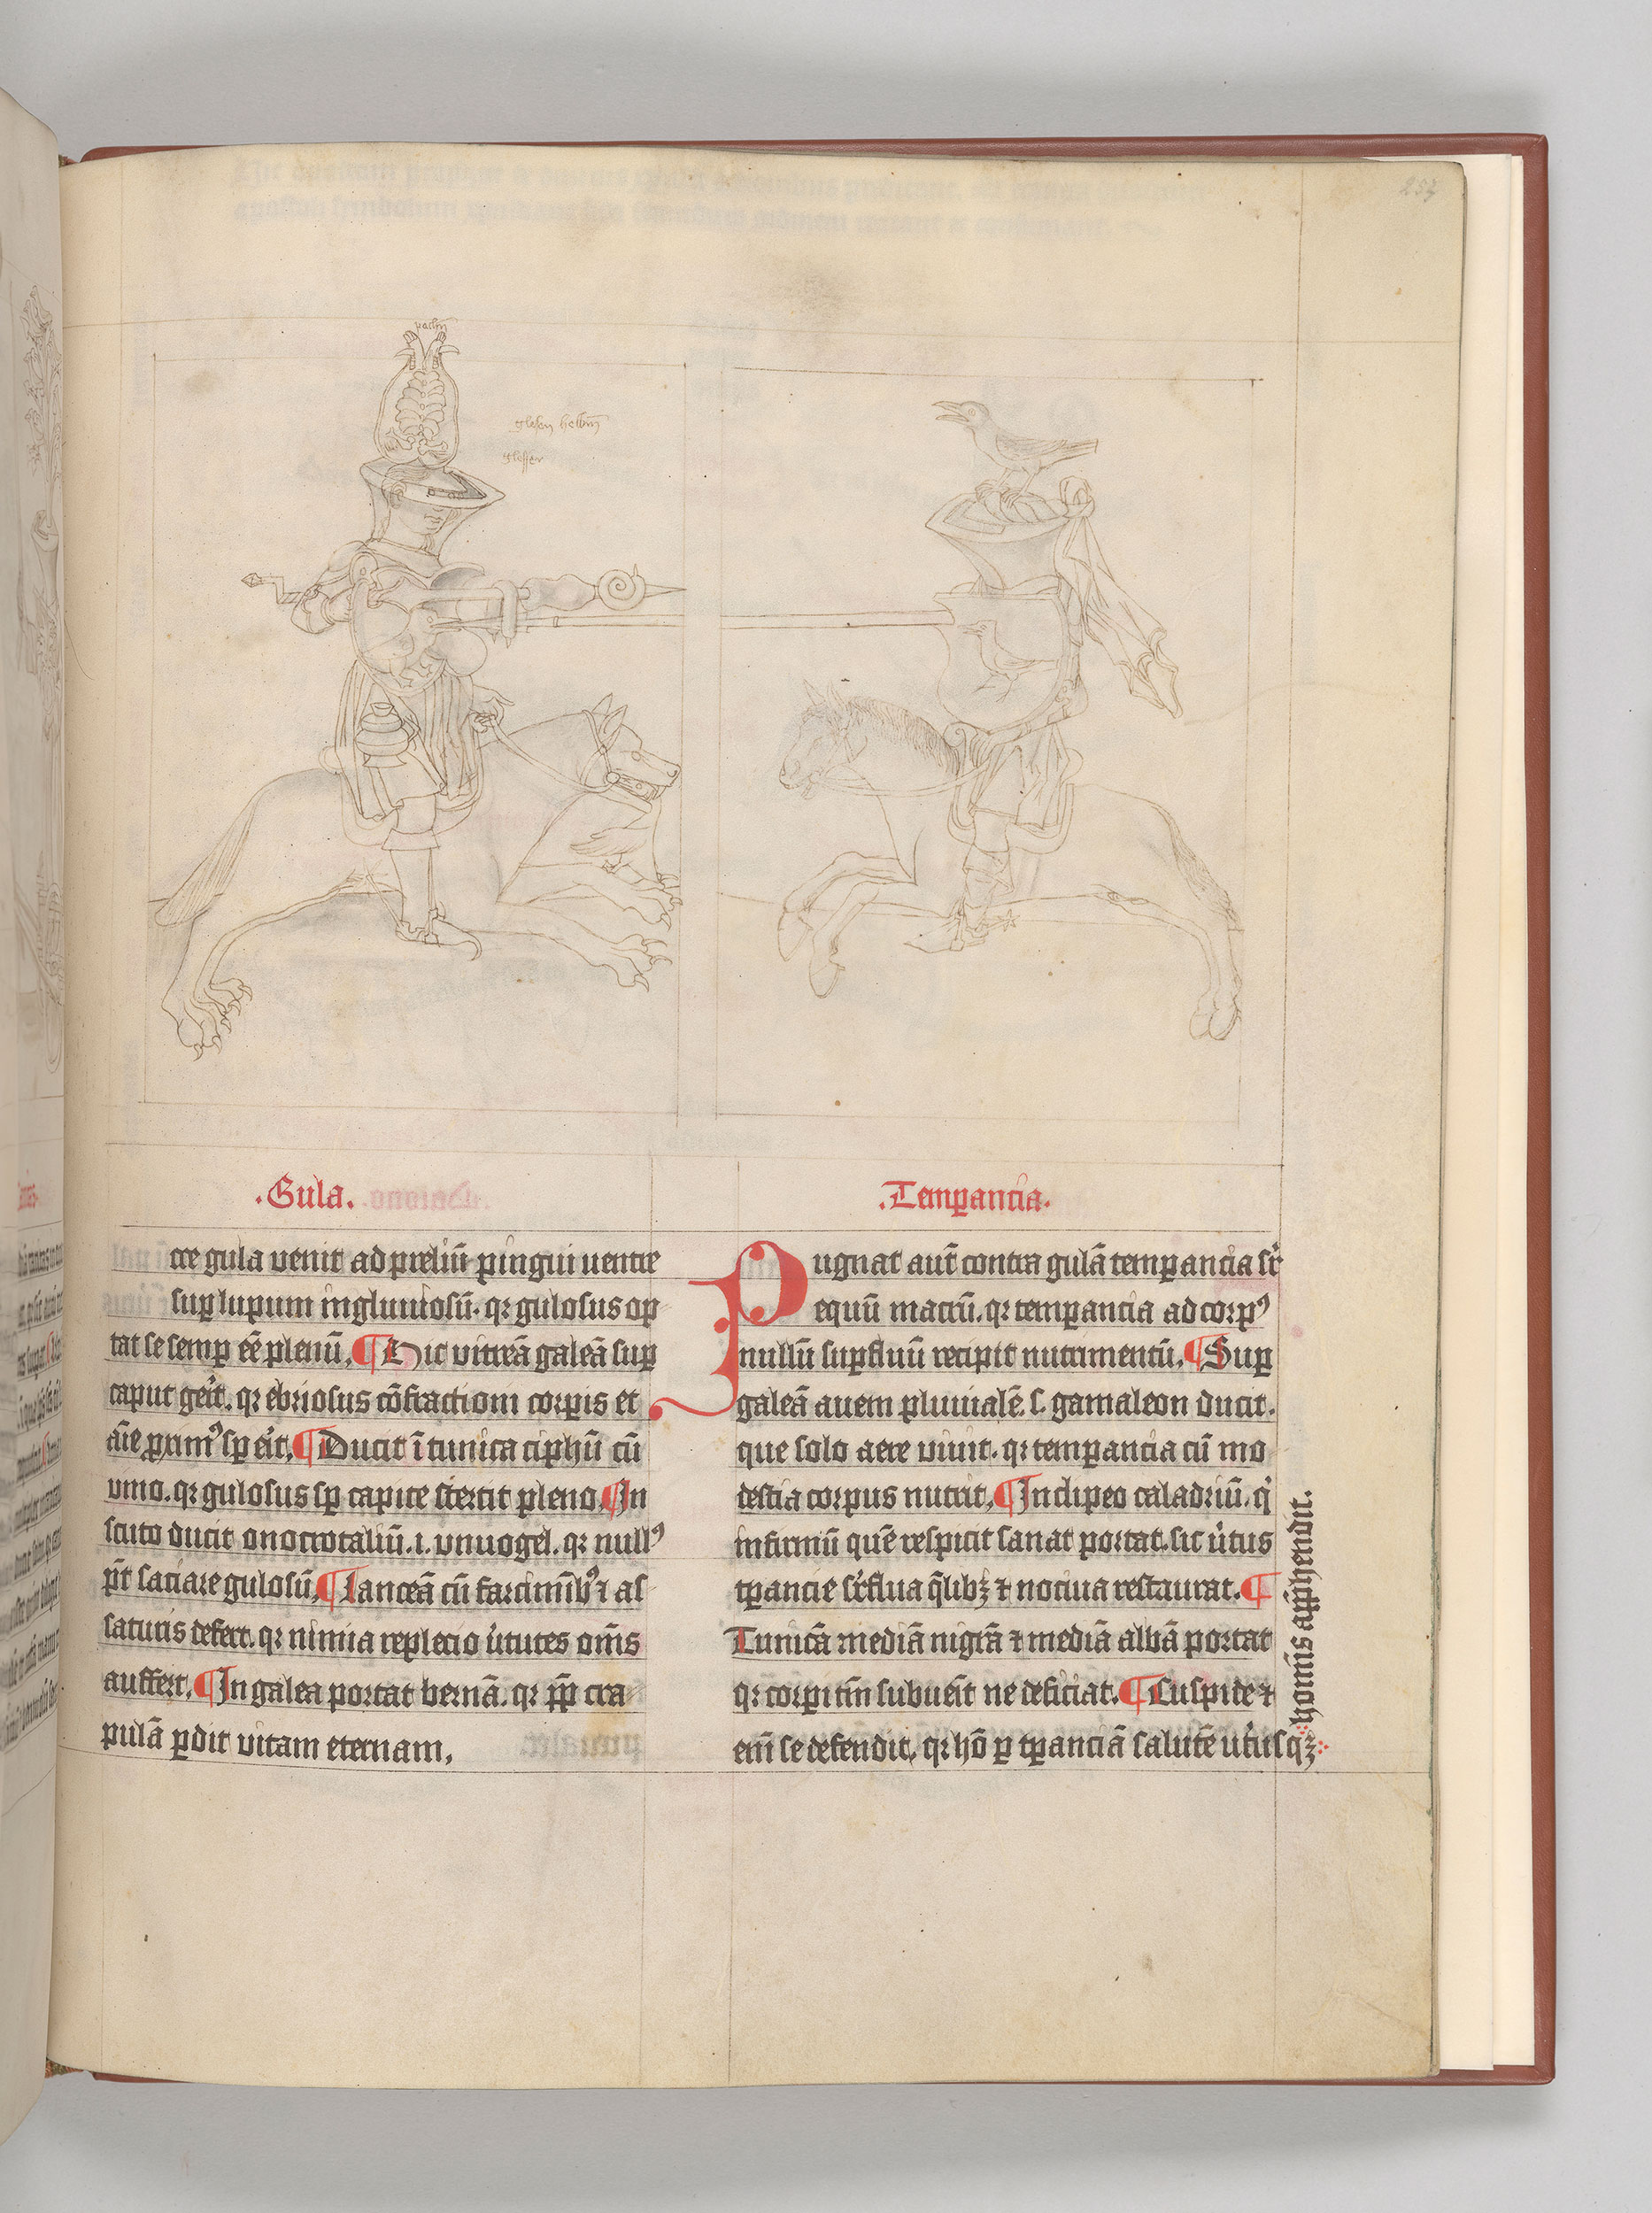 257
glesen helm
.Gula.
cce gula venit ad preliū pingui uentre
suꝑ lupum ingluuiosū. qꝛ gulosus op
tat se semꝑ eē plenū. ¶ Hic vitreā galeā suꝑ
caput geı̇t. qꝛ ebriosus cōfractioni corꝑis et
aı̄e ꝓximꝰ sꝑ eı̇t. ¶ Ducit ī tunica ciphū cū
vino. qꝛ gulosus sꝑ capite stertit pleno. ¶ In
scuto ducit onocrotaliū. i. vnuogel. qꝛ nullꝰ
p̄t saciare gulosū. ¶ Lanceā cū farcimı̄bꝰ ⁊ as
saturis defert. qꝛ nimia replecio u̇tutes om̄s
auffert. ¶ In galea portat bernā. qꝛ ꝓp̄ cra
pulā ꝑdit vitam eternam.
.Temꝑancia.
Pugnat aut̄ contra gulā temꝑancia sr̄
equū macrū. qꝛ temꝑancia ad corpꝰ
nullū suꝑfluū recipit nutrimentū. ¶ Suꝑ
galeā auem pluuialē. s. gamaleon ducit.
que solo aere viuit. qꝛ temꝑancia cū mo
destia corpus nutrit. ¶ In clipeo caladriū. q̇
infirmū quē respicit sanat portat. sic u̇tus
tꝑancie sr̄flua q̄libꝫ ⁊ nociua restaurat. ¶
Tunicā mediā nigrā ⁊ mediā albā portat
qꝛ corꝑi tn̄ subueı̇t ne deficiat. ¶ Cuspide ⁊
em̄ se defendit. qꝛ hō ꝑ tꝑanciā salutē utı̇usqꝫ
homı̄s app̄hendit.